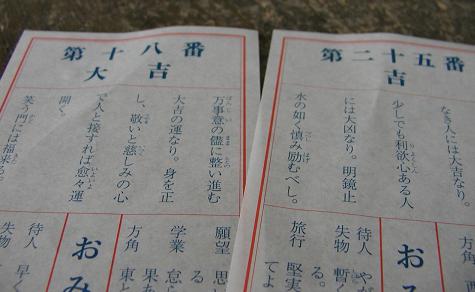 第十八番
大吉
万事意の儘に整い進む
大吉の運なり。身を正
し、敬いと慈しみの心
で人と接すれば愈々運
開く。
笑う門には福来る。
おみ
願望 思い
る
学業 怠ら
果あ
方角 東と
待人 早く
失物
第二十五番
吉
なき人には大吉なり。
少しでも利欲心ある人
には大凶なり。明鏡止
水の如く慎み励むべし。
方角
おみ
待人 やが
失物 暫く
る。
旅行 堅実
てよ